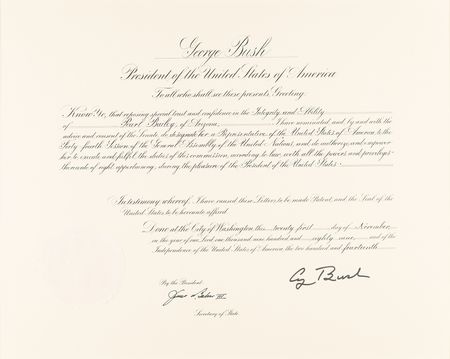 George Bush
President of the United States of America
To all who shall see these presents, Greeting:
Know Ye, that reposing special trust and confidence in the Integrity and Ability
of Pearl Bailey, of Arizona, I have nominated, and by and with the
advice and consent of the Senate, do designate her a Representative of the United States of America to the
Forty-fourth Session of the General Assembly of the United Nations, and do authorize and empower
her to execute and fulfil the duties of this commission, according to law, with all the powers and privileges
thereunto of right appertaining, during the pleasure of the President of the United States.
In testimony whereof, I have caused these Letters to be made Patent, and the Seal of the
United States to be hereunto affixed.
Done at the City of Washington this twenty first day of November,
in the year of our Lord one thousand nine hundred and eighty nine, and of the
Independence of the United States of America the two hundred and fourteenth.
G Bush
By the President:
James A. Baker III
Secretary of State.